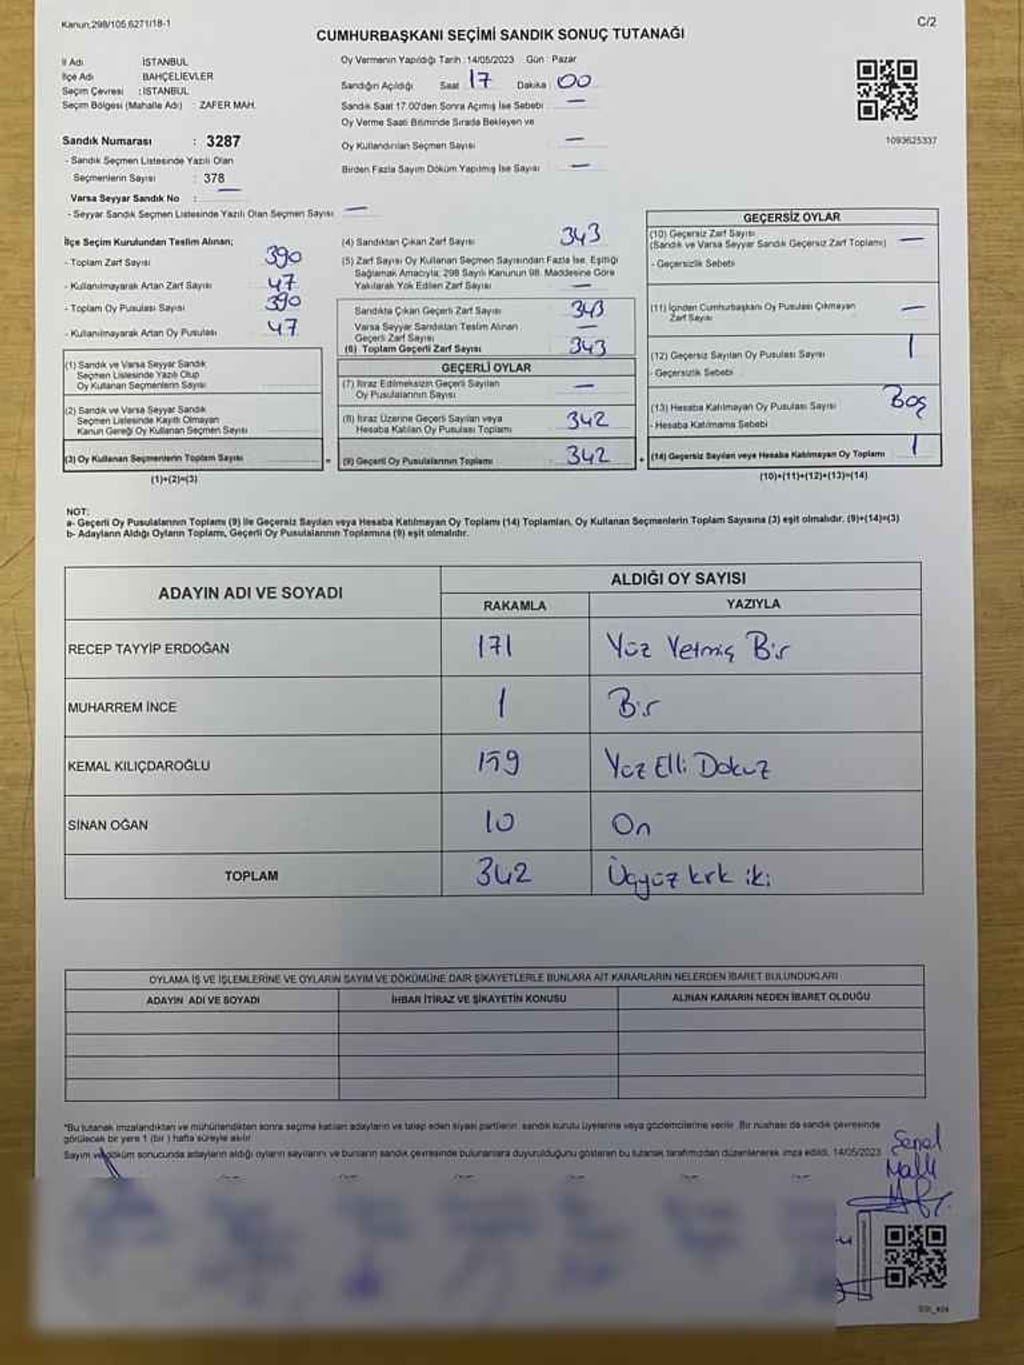 Kanun;298/105,6271/18-1
C/2
CUMHURBAŞKANI SEÇİMİ SANDIK SONUÇ TUTANAĞI
İl Adı İSTANBUL
İlçe Adı BAHÇELİEVLER
Seçim Çevresi : İSTANBUL
Seçim Bölgesi (Mahalle Adı) : ZAFER MAH.
Sandık Numarası : 3287
- Sandık Seçmen Listesinde Yazılı Olan
Seçmenlerin Sayısı : 378
Varsa Seyyar Sandık No : —
- Seyyar Sandık Seçmen Listesinde Yazılı Olan Seçmen Sayısı —
Oy Vermenin Yapıldığı Tarih : 14/05/2023 Gün : Pazar
Sandığın Açıldığı Saat 17 Dakika 00
Sandık Saat 17.00'den Sonra Açımış İse Sebebi —
Oy Verme Saati Bitiminde Sırada Bekleyen ve
Oy Kullandırılan Seçmen Sayısı —
Birden Fazla Sayım Döküm Yapılmış İse Sayısı —
1093625337
İlçe Seçim Kurulundan Teslim Alınan;
- Toplam Zarf Sayısı 390
- Kullanılmayarak Artan Zarf Sayısı 47
- Toplam Oy Pusulası Sayısı 390
- Kullanılmayarak Artan Oy Pusulası 47
(1) Sandık ve Varsa Seyyar Sandık
Seçmen Listesinde Yazılı Olup
Oy Kullanan Seçmenlerin Sayısı
(2) Sandık ve Varsa Seyyar Sandık
Seçmen Listesinde Kayıtlı Olmayan
Kanun Gereği Oy Kullanan Seçmen Sayısı
(3) Oy Kullanan Seçmenlerin Toplam Sayısı
(1)+(2)=(3)
(4) Sandıktan Çıkan Zarf Sayısı 343
(5) Zarf Sayısı Oy Kullanan Seçmen Sayısından Fazla İse, Eşitliği
Sağlamak Amacıyla; 298 Sayılı Kanunun 98. Maddesine Göre
Yakılarak Yok Edilen Zarf Sayısı —
Sandıkta Çıkan Geçerli Zarf Sayısı 343
Varsa Seyyar Sandıktan Teslim Alınan
Geçerli Zarf Sayısı —
(6) Toplam Geçerli Zarf Sayısı 343
GEÇERLİ OYLAR
(7) İtiraz Edilmeksizin Geçerli Sayılan
Oy Pusulasının Sayısı —
(8) İtiraz Üzerine Geçerli Sayılan veya
Hesaba Katılan Oy Pusulası Toplamı 342
= (9) Geçerli Oy Pusulalarının Toplamı 342 +
GEÇERSİZ OYLAR
(10) Geçersiz Zarf Sayısı
(Sandık ve Varsa Seyyar Sandık Geçersiz Zarf Toplamı) —
- Geçersizlik Sebebi
(11) İçinden Cumhurbaşkanı Oy Pusulası Çıkmayan
Zarf Sayısı —
(12) Geçersiz Sayılan Oy Pusulası Sayısı 1
- Geçersizlik Sebebi
(13) Hesaba Katılmayan Oy Pusulası Sayısı Boş
- Hesaba Katılmama Sebebi
(14) Geçersiz Sayılan veya Hesaba Katılmayan Oy Toplamı 1
(10)+(11)+(12)+(13)=(14)
NOT:
a- Geçerli Oy Pusulalarının Toplamı (9) ile Geçersiz Sayılan veya Hesaba Katılmayan Oy Toplamı (14) Toplamları, Oy Kullanan Seçmenlerin Toplam Sayısına (3) eşit olmalıdır. (9)+(14)=(3)
b- Adayların Aldığı Oyların Toplamı, Geçerli Oy Pusulalarının Toplamına (9) eşit olmalıdır.
ADAYIN ADI VE SOYADI
ALDIĞI OY SAYISI
RAKAMLA YAZIYLA
RECEP TAYYİP ERDOĞAN 171 Yüz Yetmiş Bir
MUHARREM İNCE 1 Bir
KEMAL KILIÇDAROĞLU 159 Yüz Elli Dokuz
SİNAN OĞAN 10 On
TOPLAM 342 Üçyüz kırk iki
OYLAMA İŞ VE İŞLEMLERİNE VE OYLARIN SAYIM VE DÖKÜMÜNE DAİR ŞİKAYETLERLE BUNLARA AİT KARARLARIN NELERDEN İBARET BULUNDUKLARI
ADAYIN ADI VE SOYADI İHBAR İTİRAZ VE ŞİKAYETİN KONUSU ALINAN KARARIN NEDEN İBARET OLDUĞU
*Bu tutanak imzalandıktan ve mühürlendikten sonra seçime katılan adayların ve talep eden siyasi partilerin, sandık kurulu üyelerine veya gözlemcilerine verilir. Bir nüshası da sandık çevresinde
görülecek bir yere 1 (bir) hafta süreyle asılır.
Sayım ve döküm sonucunda adayların aldığı oyların sayılarını ve bunların sandık çevresinde bulunanlara duyurulduğunu gösteren bu tutanak tarafımızdan düzenlenerek imza edildi. 14/05/2023